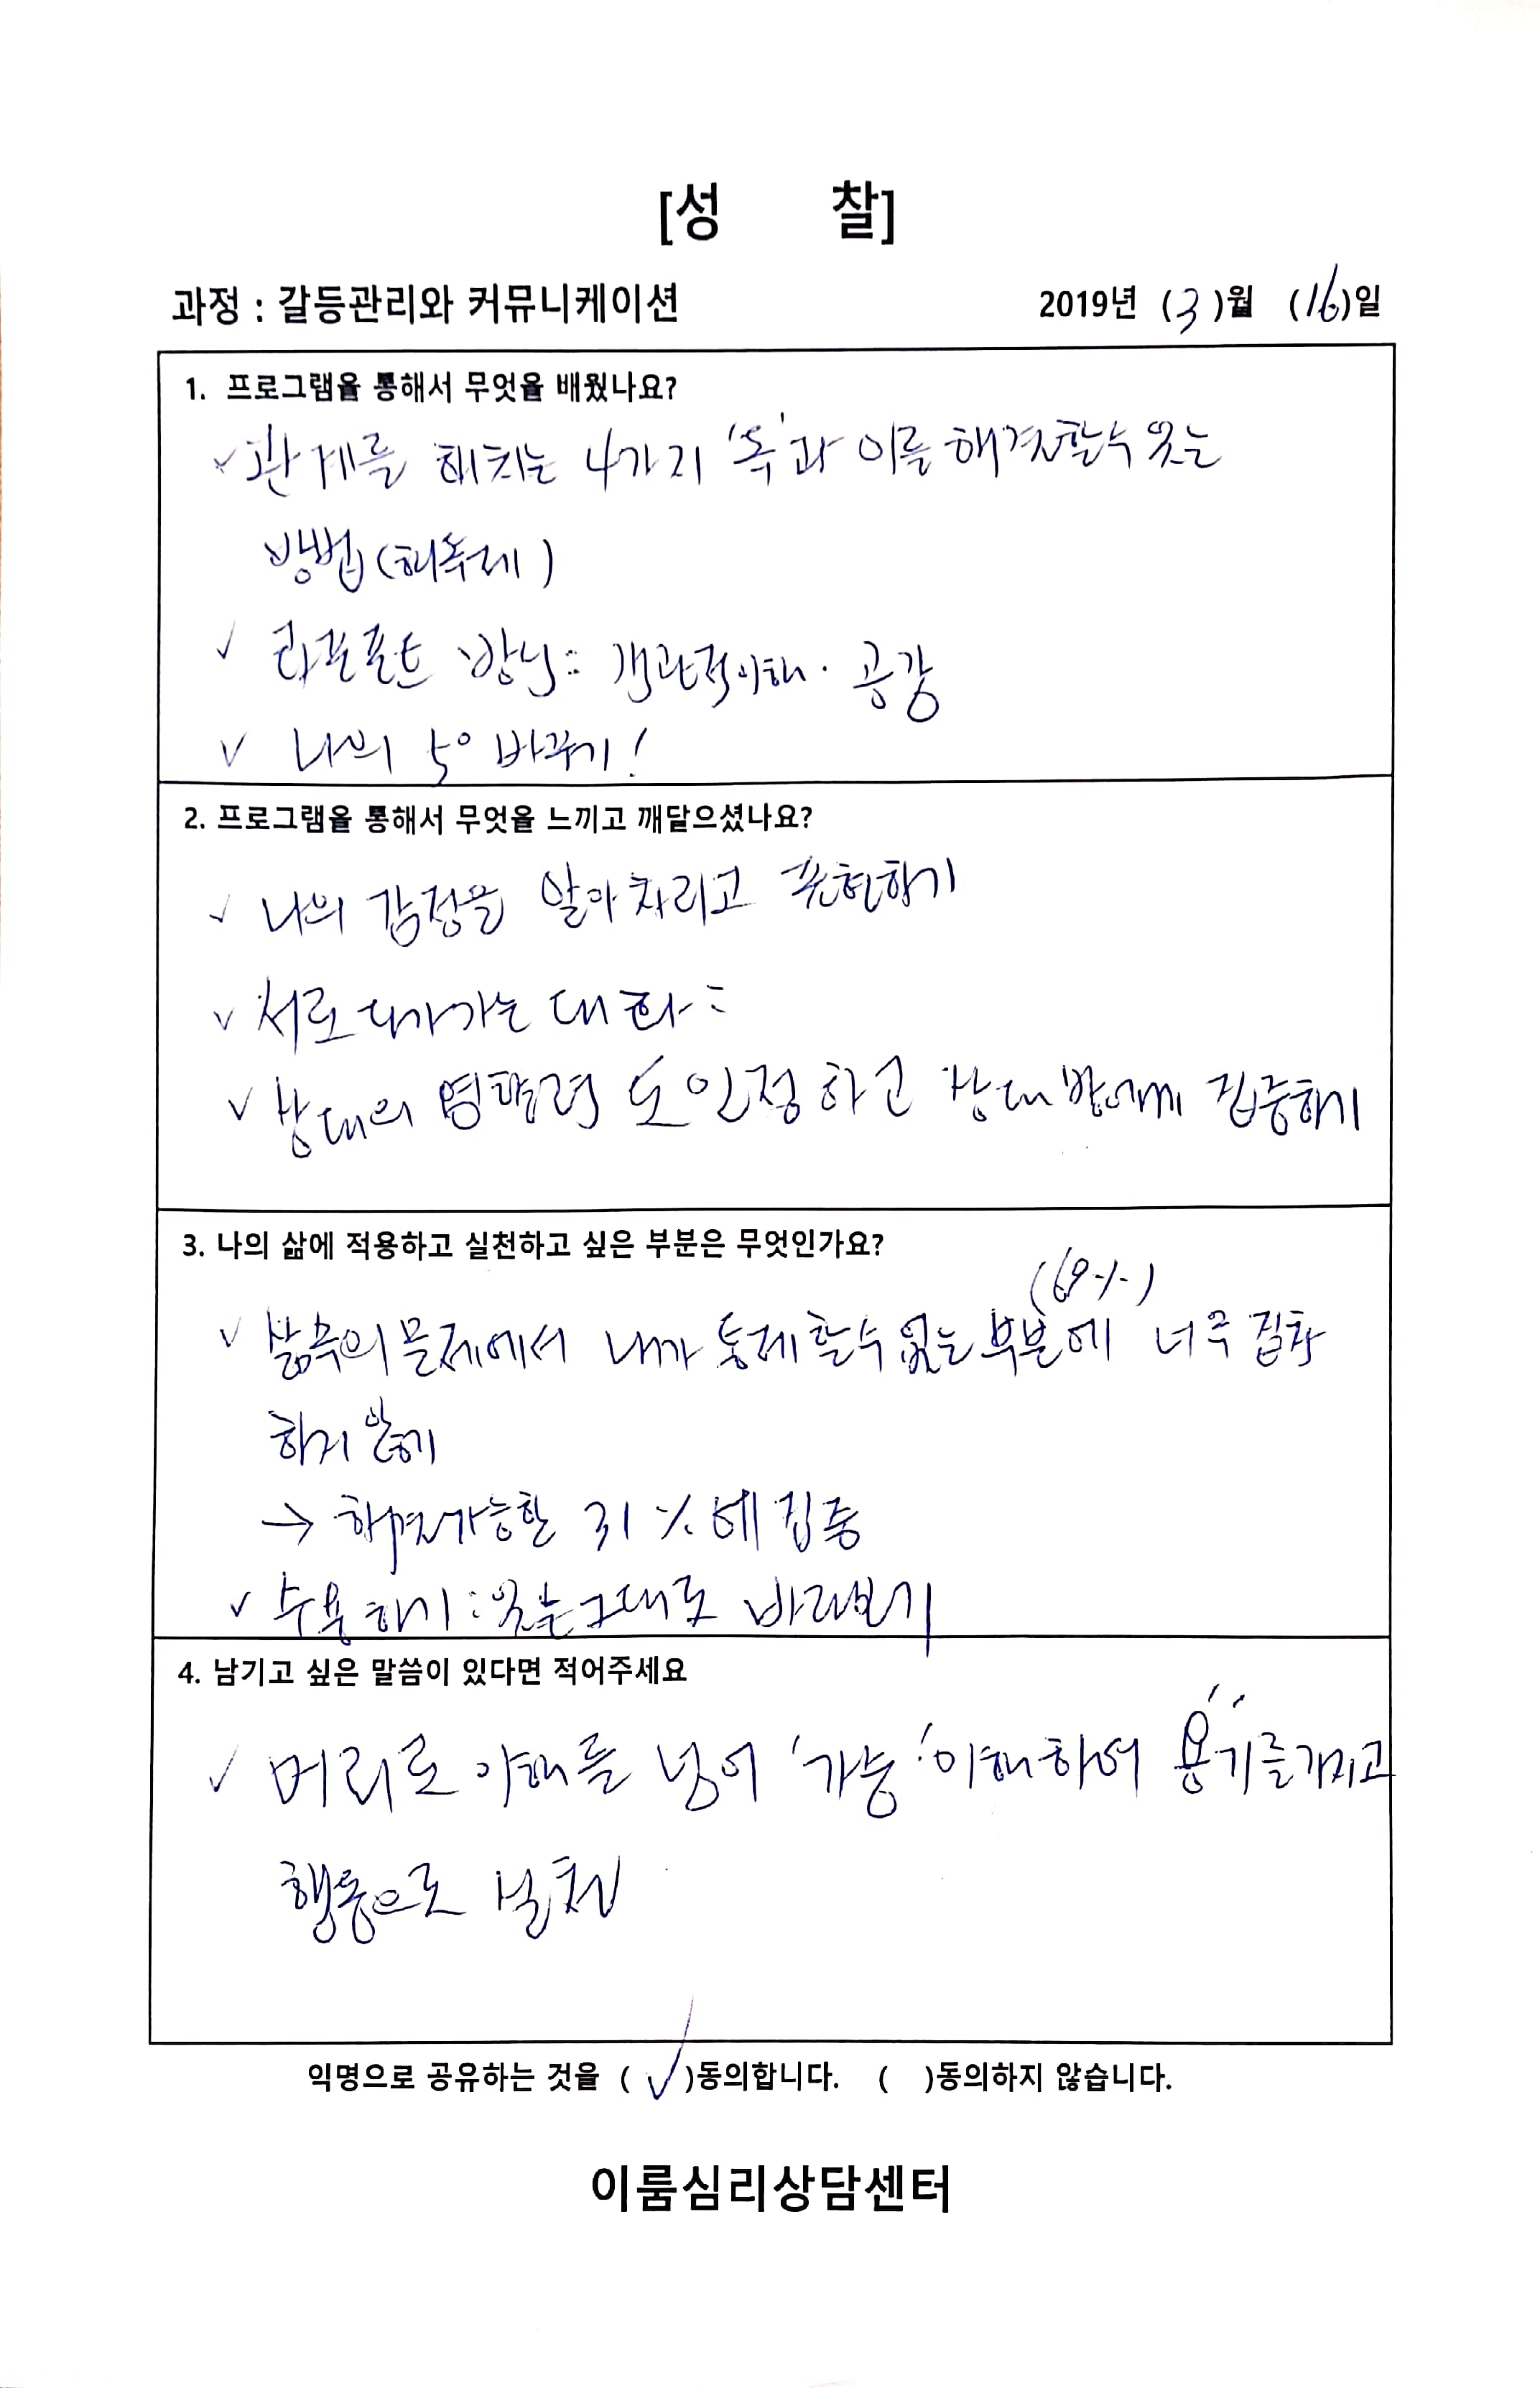 [성 찰]
과정 : 갈등관리와 커뮤니케이션 2019년 (3)월 (16)일
1. 프로그램을 통해서 무엇을 배웠나요?
✓관계를 해치는 4가지 '독'과 이를 해결할수 있는
방법(해독제)
✓ 라포포트 방식: 객관적이해 · 공감
✓ 나의 5° 바꾸기!
2. 프로그램을 통해서 무엇을 느끼고 깨달으셨나요?
✓ 나의 감정을 알아차리고 표현하기
✓ 서로 다가가는 대화:
✓ 상대의 영향력도 인정하고 상대방에게 집중하기
3. 나의 삶에 적용하고 실천하고 싶은 부분은 무엇인가요?
(69%)
✓ 삶속의 문제에서 내가 통제할수 없는 부분에 너무 집착
하지 않기
→ 해결가능한 31%에 집중
✓ 수용하기: 있는그대로 바라보기
4. 남기고 싶은 말씀이 있다면 적어주세요
✓ 머리로 이해를 넘어 '가슴' 이해하여 용기를 가지고
행동으로 실천
익명으로 공유하는 것을 (✓)동의합니다. ( )동의하지 않습니다.
이룸심리상담센터